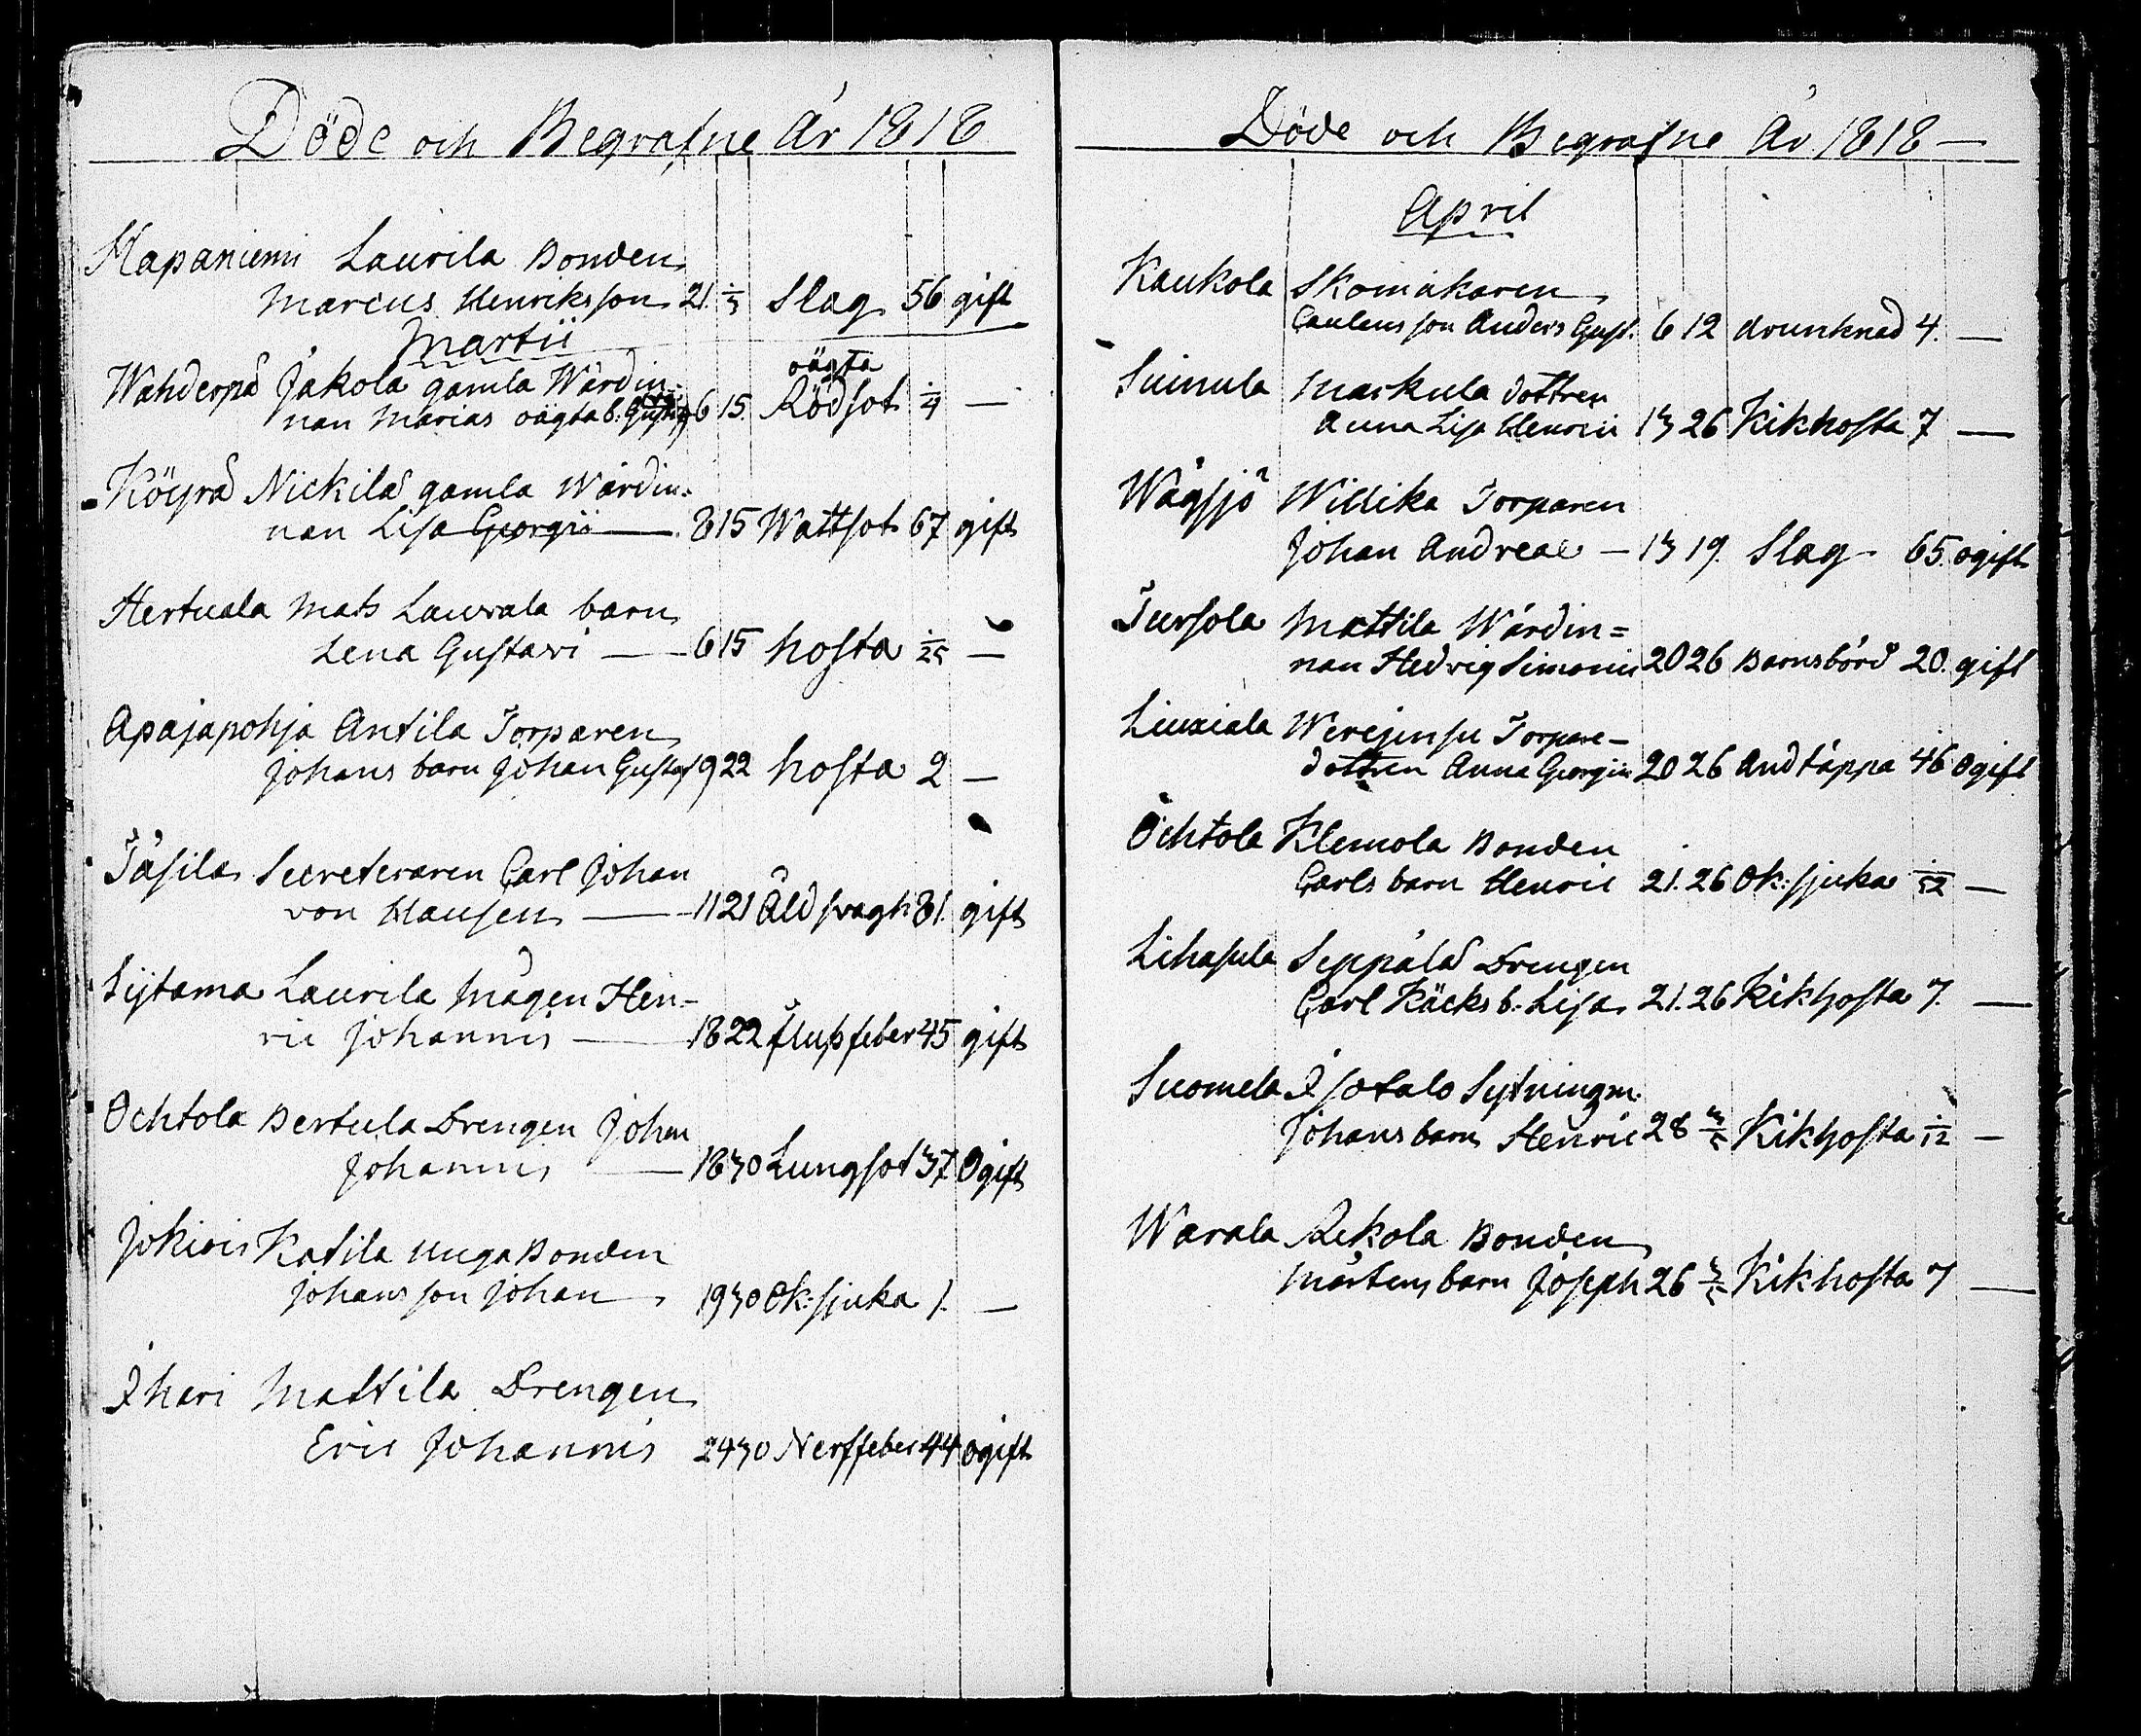 Döde och Begrafne År 1818
Hapaniemi Laurila Bonden
Marcus Henriksson 21. 1/3 Slag 56 gift
Martii
Wahderpä Jakola gamla Wärdin-
oägta
nan Marias oägta b. Gustaf 6 15. Rödsot 1/4 —
Köyrä Nickilä gamla Wärdin-
nan Lisa Georgii — 8 15 Wattsot 67 gift
Hertuala Mats Laurala barn
Lena Gustavi — 6 15 hosta 1/25 —
Apajapohja Antila Torparen
Johans barn Johan Gustaf 19 22 hosta 2 —
Täsilä Secreteraren Carl Johan
von Hausen — 11 21 Åld svagh 81. gift
Sytama Laurila Mågen Hen-
ric Johannis — 18 22 Flussfeber 45 gift
Ochtola Bertula Drengen Johan
Johannis — 18 30 Lungsot 37 Ogift
Jokiois Katila Unga Bonden
Johans son Johan 19 30 Ok: sjuka 1. —
Ihari Mattila Drengen
Eric Johannis 24 30 Nerffeber 44 Ogift
Döde och Begrafne År 1818 —
April
Kaukola Skomakaren
Caulens son Anders Gust. 6 12 drunknad 4. —
Suinula Markula dottren
Anna Lisa Henrici 13 26 Kikhosta 7 —
Wägsjö Willika Torparen
Johan Andreae — 13 19. Slag 65. ogift
Tursola Mattila Wärdin=
nan Hedvig Simonis 20 26 Barnsbörd 20. gift
Liuxiala Werejensu Torpare-
dottren Anna Georgii 20 26 Andtäppa 46 Ogift
Ochtola Klemola Bonden
Carls barn Henric 21. 26 Ok: sjuka 1/52 —
Lihasula Seppälä Drengen
Carl Käcks b. Lisa 21. 26 Kikhosta 7. —
Suomela Isotalo Sytningm.
Johans barn Henric 28 3/5 Kikhosta 1/12 —
Warala Rekola Bonden
Mårtens barn Joseph 26 3/5 Kikhosta 7 —